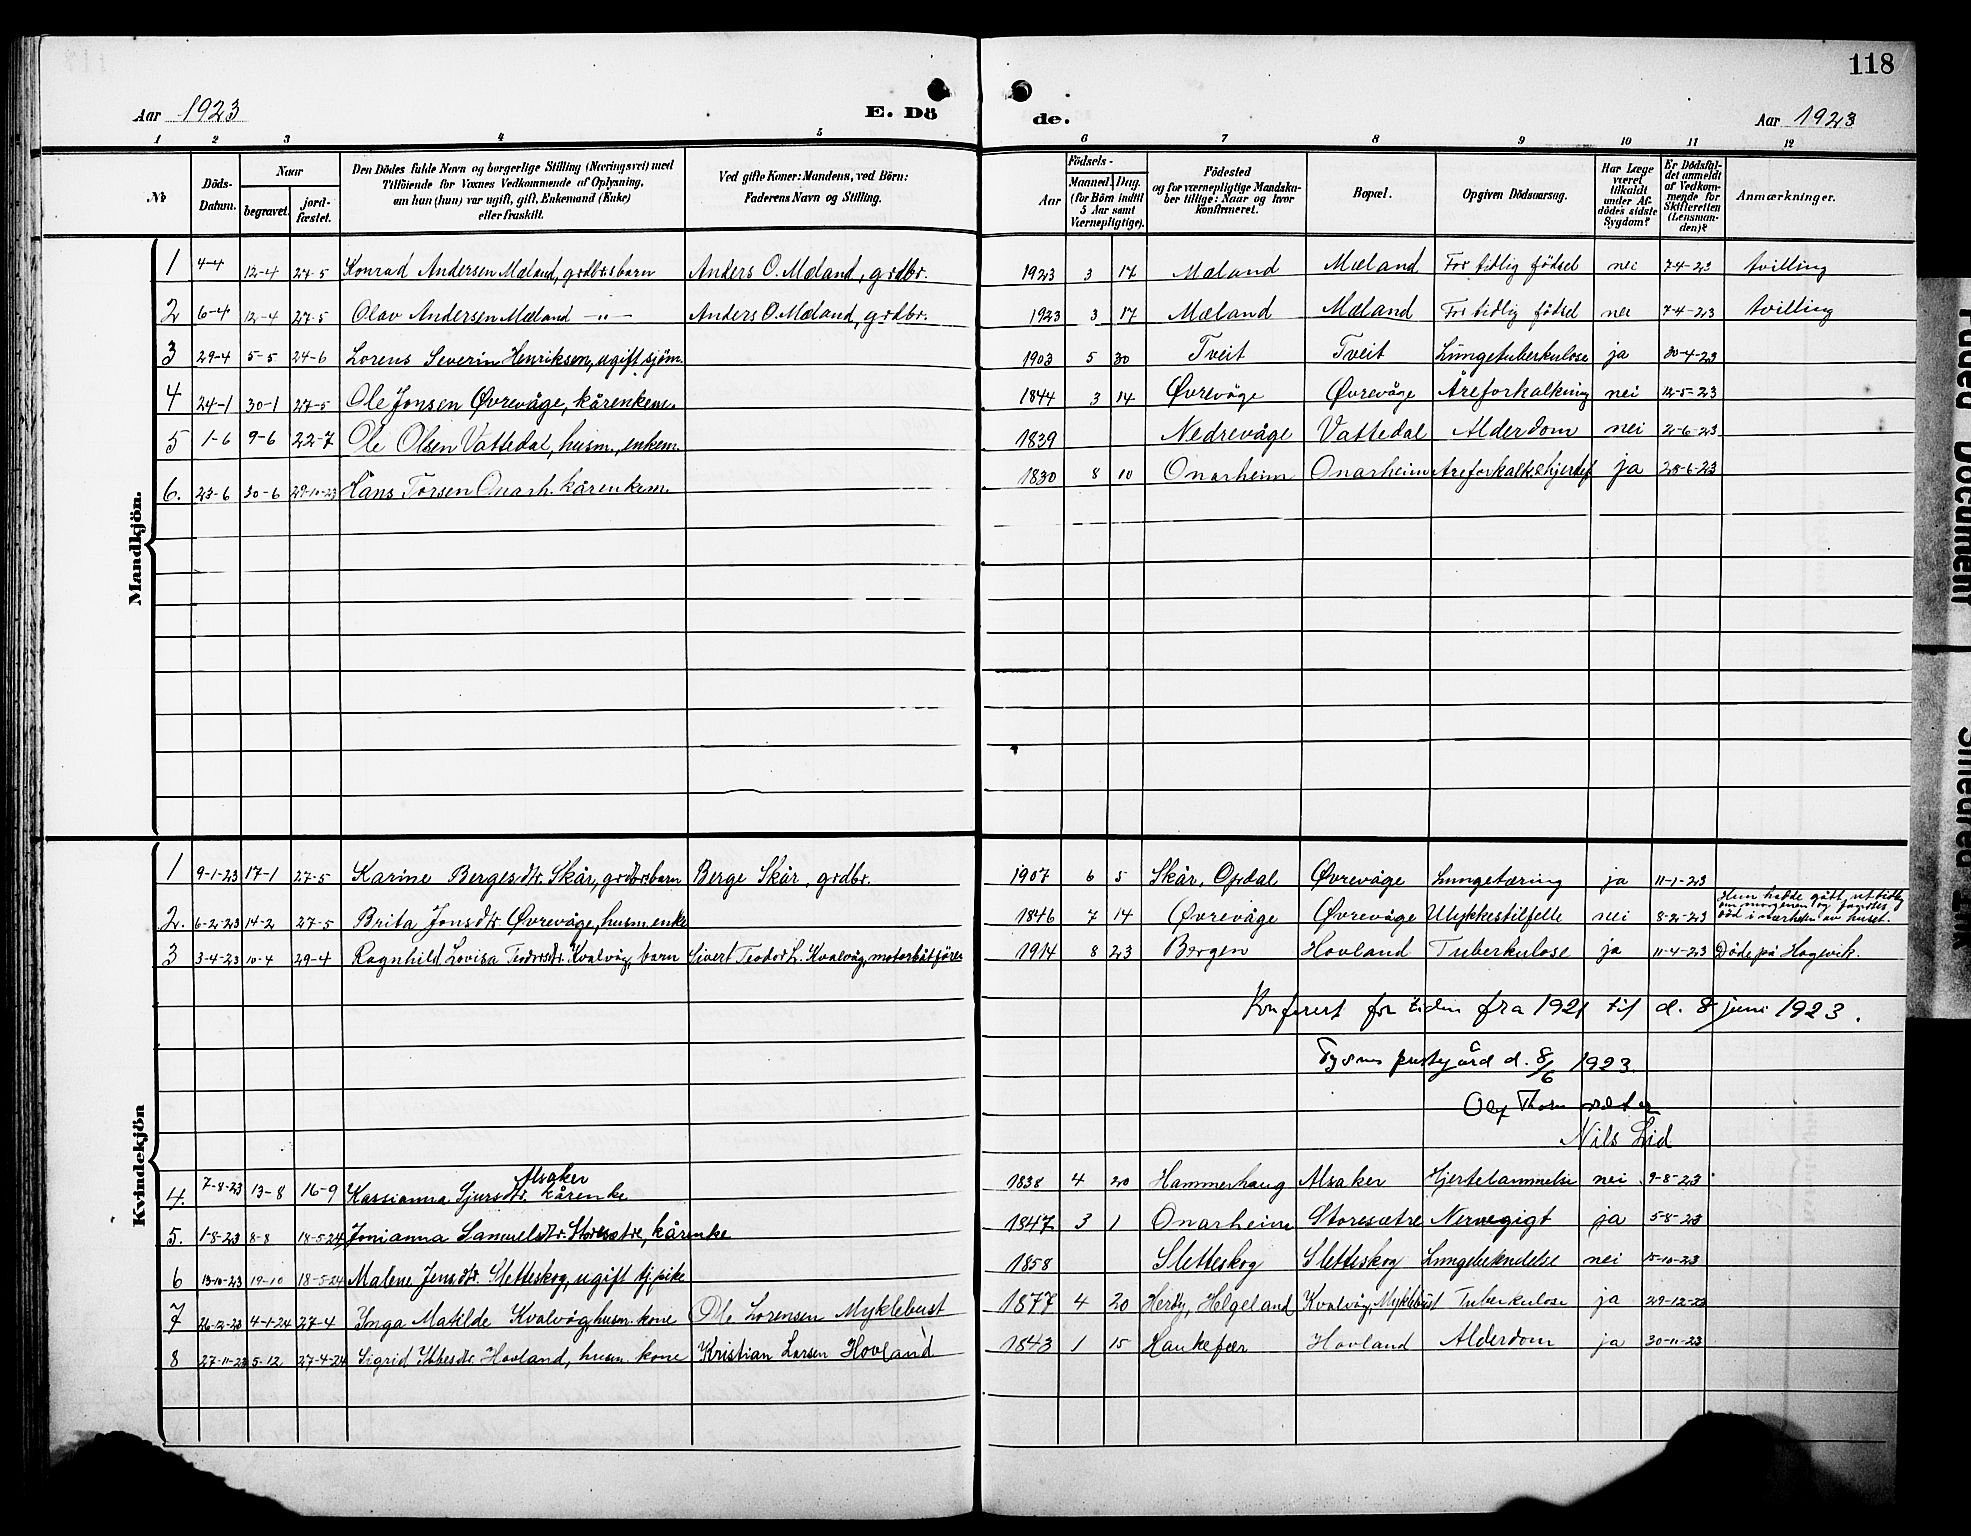 118
Aar 1923 E. Dö de. Aar 1923
1 2 3 4 5 6 7 8 9 10 11 12
No Döds-Datum. Naar begravet. jord-fæstet. Den Dödes fulde Navn og borgerlige Stilling (Næringsvei) med Tilföiende for Voxnes Vedkommende af Oplysning, om han (hun) var ugift, gift, Enkemand (Enke) eller fraskilt. Ved gifte Koner: Mandens, ved Börn: Faderens Navn og Stilling. Födsels- Aar Maaned. Dag. (for Börn indtil 5 Aar samt Værnepligtige). Födested og for værnepligtige Mandskaber tillige: Naar og hvor konfirmeret. Bopæl. Opgiven Dödsaarsag. Har Læge været tilkaldt under Afdödes sidste Sygdom? Er Dödsfaldet anmeldt af Vedkommende for Skifteretten (Lensmanden)? Anmærkninger.
Mandkjön.
1 4-4 12-4 27-5 Konrad Andersen Mæland, grdbrs barn Anders O. Mæland, grdbr. 1923 3 17 Mæland Mæland For tidlig födsel nei 7-4-23 tvilling
2 6-4 12-4 27-5 Olav Andersen Mæland -"- Anders O. Mæland, grdbr. 1923 3 17 Mæland Mæland For tidlig födsel nei 7-4-23 tvilling
3 29-4 5-5 24-6 Lorens Severin Henriksen, ugift sjöm. 1903 5 30 Tveit Tveit Lungetuberkulose ja 30-4-23
4 24-1 30-1 27-5 Ole Jonsen Øvrevåge, kårenkem. 1844 3 14 Øvrevåge Øvrevåge Åreforkalkning nei 12-5-23
5 1-6 9-6 22-7 Ole Olsen Vattedal, husm., enkem. 1839 Nedrevåge Vattedal Alderdom nei 2-6-23
6. 23-6 30-6 29-10-23 Hans Torsen Onarh. kårenkem. 1830 8 10 Onarheim Onarheim Åreforkalk. & hjertef ja 25-6-23
Kvindekjön
1 9-1-23 17-1 27-5 Karine Bergesdtr. Skår, grdbrs barn Berge Skår, grdbr. 1907 6 5 Skår, Opdal Øvrevåge Lungetæring ja 11-1-23
2. 6-2-23 14-2 27-5 Brita Jonsdtr. Øvrevåge, husm. enke 1846 7 14 Øvrevåge Øvrevåge Ulykkestilfelle nei 8-2-23 Hun hadde gått ut tidlig om morgenen og fandtes död i nærheten av huset.
3 3-4-23 10-4 29-4 Ragnhild Lovisa Teodorsdtr. Kvalvåg, barn Sivert Teodor L. Kvalvåg, motorbåtförer 1914 8 23 Bergen Hovland Tuberkulose ja 11-4-23 Døde på Hagevik.
Konferert for tiden fra 1921 til d. 8 juni 1923.
Tysnes prestegård d. 8/6 1923
Nils Lid
4. 7-8-23 13-8 16-9 Kassianna Sjursdtr. Alsaker kårenke 1838 4 20 Hammerhaug Alsaker Hjertelammelse nei 9-8-23
5. 1-8-23 8-8 18-5-24 Jonianna Samuelsdtr. Storesætre, kårenke 1847 3 1 Onarheim Storesætre Nervegigt ja 5-8-23
6 13-10-23 19-10 18-5-24 Malene Jensdtr. Sletteskog, ugift tj.pike 1858 Sletteskog Sletteskog Lungebetændelse nei 15-10-23
7 26-12-23 4-1-24 27-4 Inga Matilde Kvalvåg, husm. kone Ole Lorensen Myklebust 1877 4 20 Herøy, Helgeland Kvalvåg, Myklebust Tuberkulose ja 29-12-23
8 27-11-23 5-12 27-4-24 Sigrid Ibbesdtr. Hovland, husm. kone Kristian Larsen Hovland 1843 1 15 Haukefær Hovland Alderdom ja 30-11-23